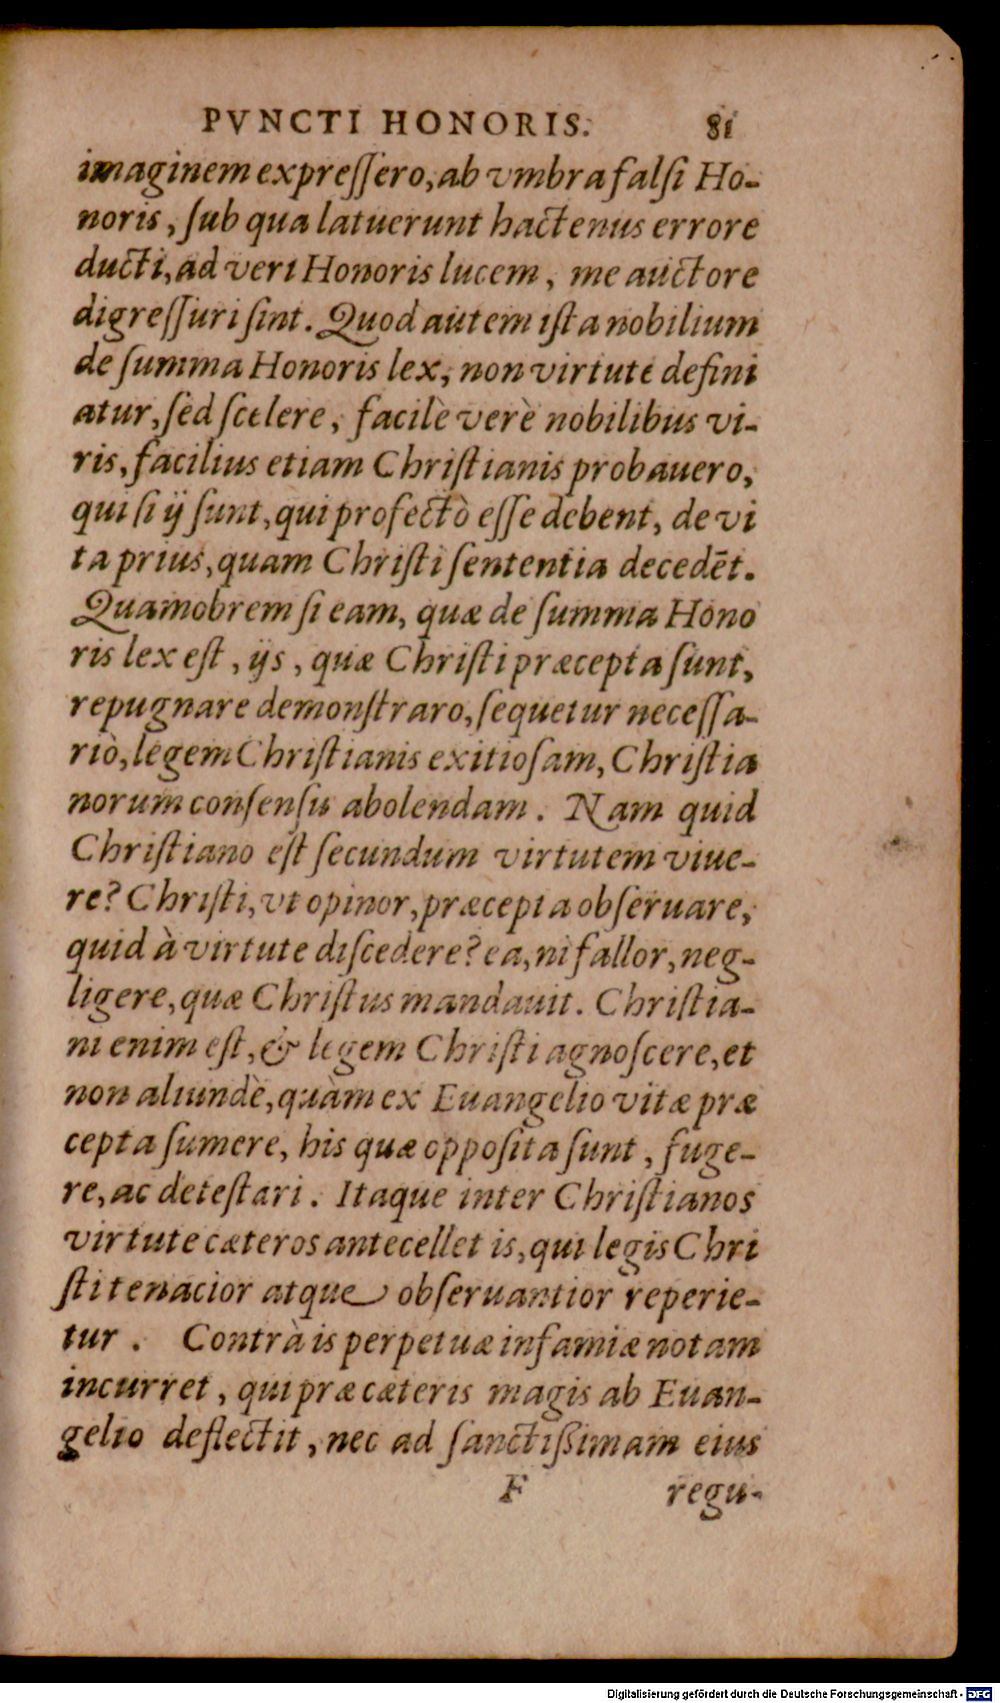 PVNCTI HONORIS. 81
imaginem expreſſero, ab vmbra falſi Ho-
noris, ſub qua latuerunt hactenus errore
ducti, ad veri Honoris lucem, me auctore
digreſſuri ſint. Quod autem iſta nobilium
de ſumma Honoris lex, non virtute defini
atur, ſed ſcelere, facilè verè nobilibus vi-
ris, facilius etiam Chriſtianis probauero,
qui ſi ij ſunt, qui profectò eſſe debent, de vi
ta prius, quam Chriſti ſententia decedēt.
Quamobrem ſi eam, quæ de ſumma Hono
ris lex eſt, ijs, quæ Chriſti præcepta ſunt,
repugnare demonſtraro, ſequetur neceſſa-
riò, legem Chriſtianis exitioſam, Chriſtia
norum conſenſu abolendam. Nam quid
Chriſtiano eſt ſecundum virtutem viue-
re? Chriſti, vt opinor, præcepta obſeruare,
quid à virtute diſcedere? ea, ni fallor, neg-
ligere, quæ Chriſtus mandauit. Chriſtia-
ni enim eſt, & legem Chriſti agnoſcere, et
non aliundè, quàm ex Euangelio vitæ præ
cepta ſumere, his quæ oppoſita ſunt, fuge-
re, ac deteſtari. Itaque inter Chriſtianos
virtute cæteros antecellet is, qui legis Chri
ſti tenacior atque obſeruantior reperie-
tur. Contrà is perpetuæ infamiæ notam
incurret, qui præ cæteris magis ab Euan-
gelio deflectit, nec ad ſanctißimam eius
F regu-
Digitalisierung gefördert durch die Deutsche Forschungsgemeinschaft - DFG